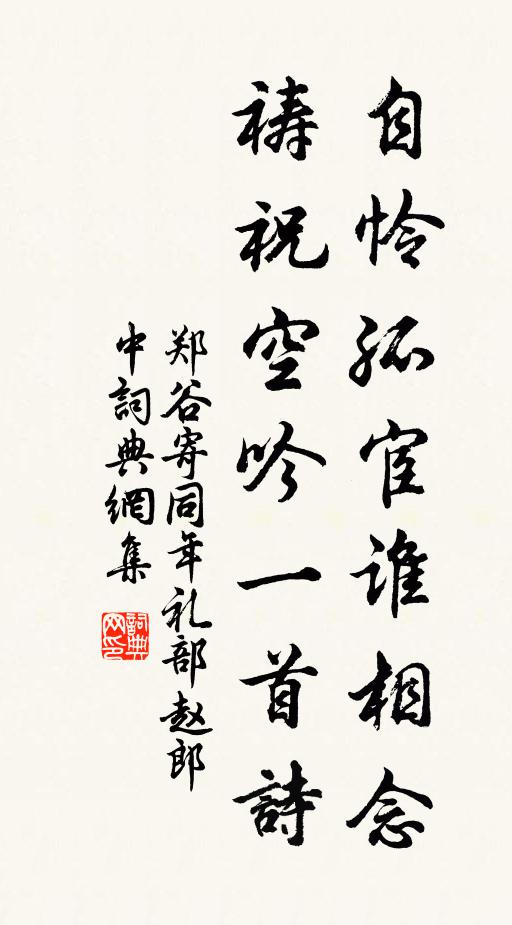 自怜孤宦谁相念
祷祝空吟一首詩
郑谷寄同年礼部赵郎
中詞典網集
詞典网印